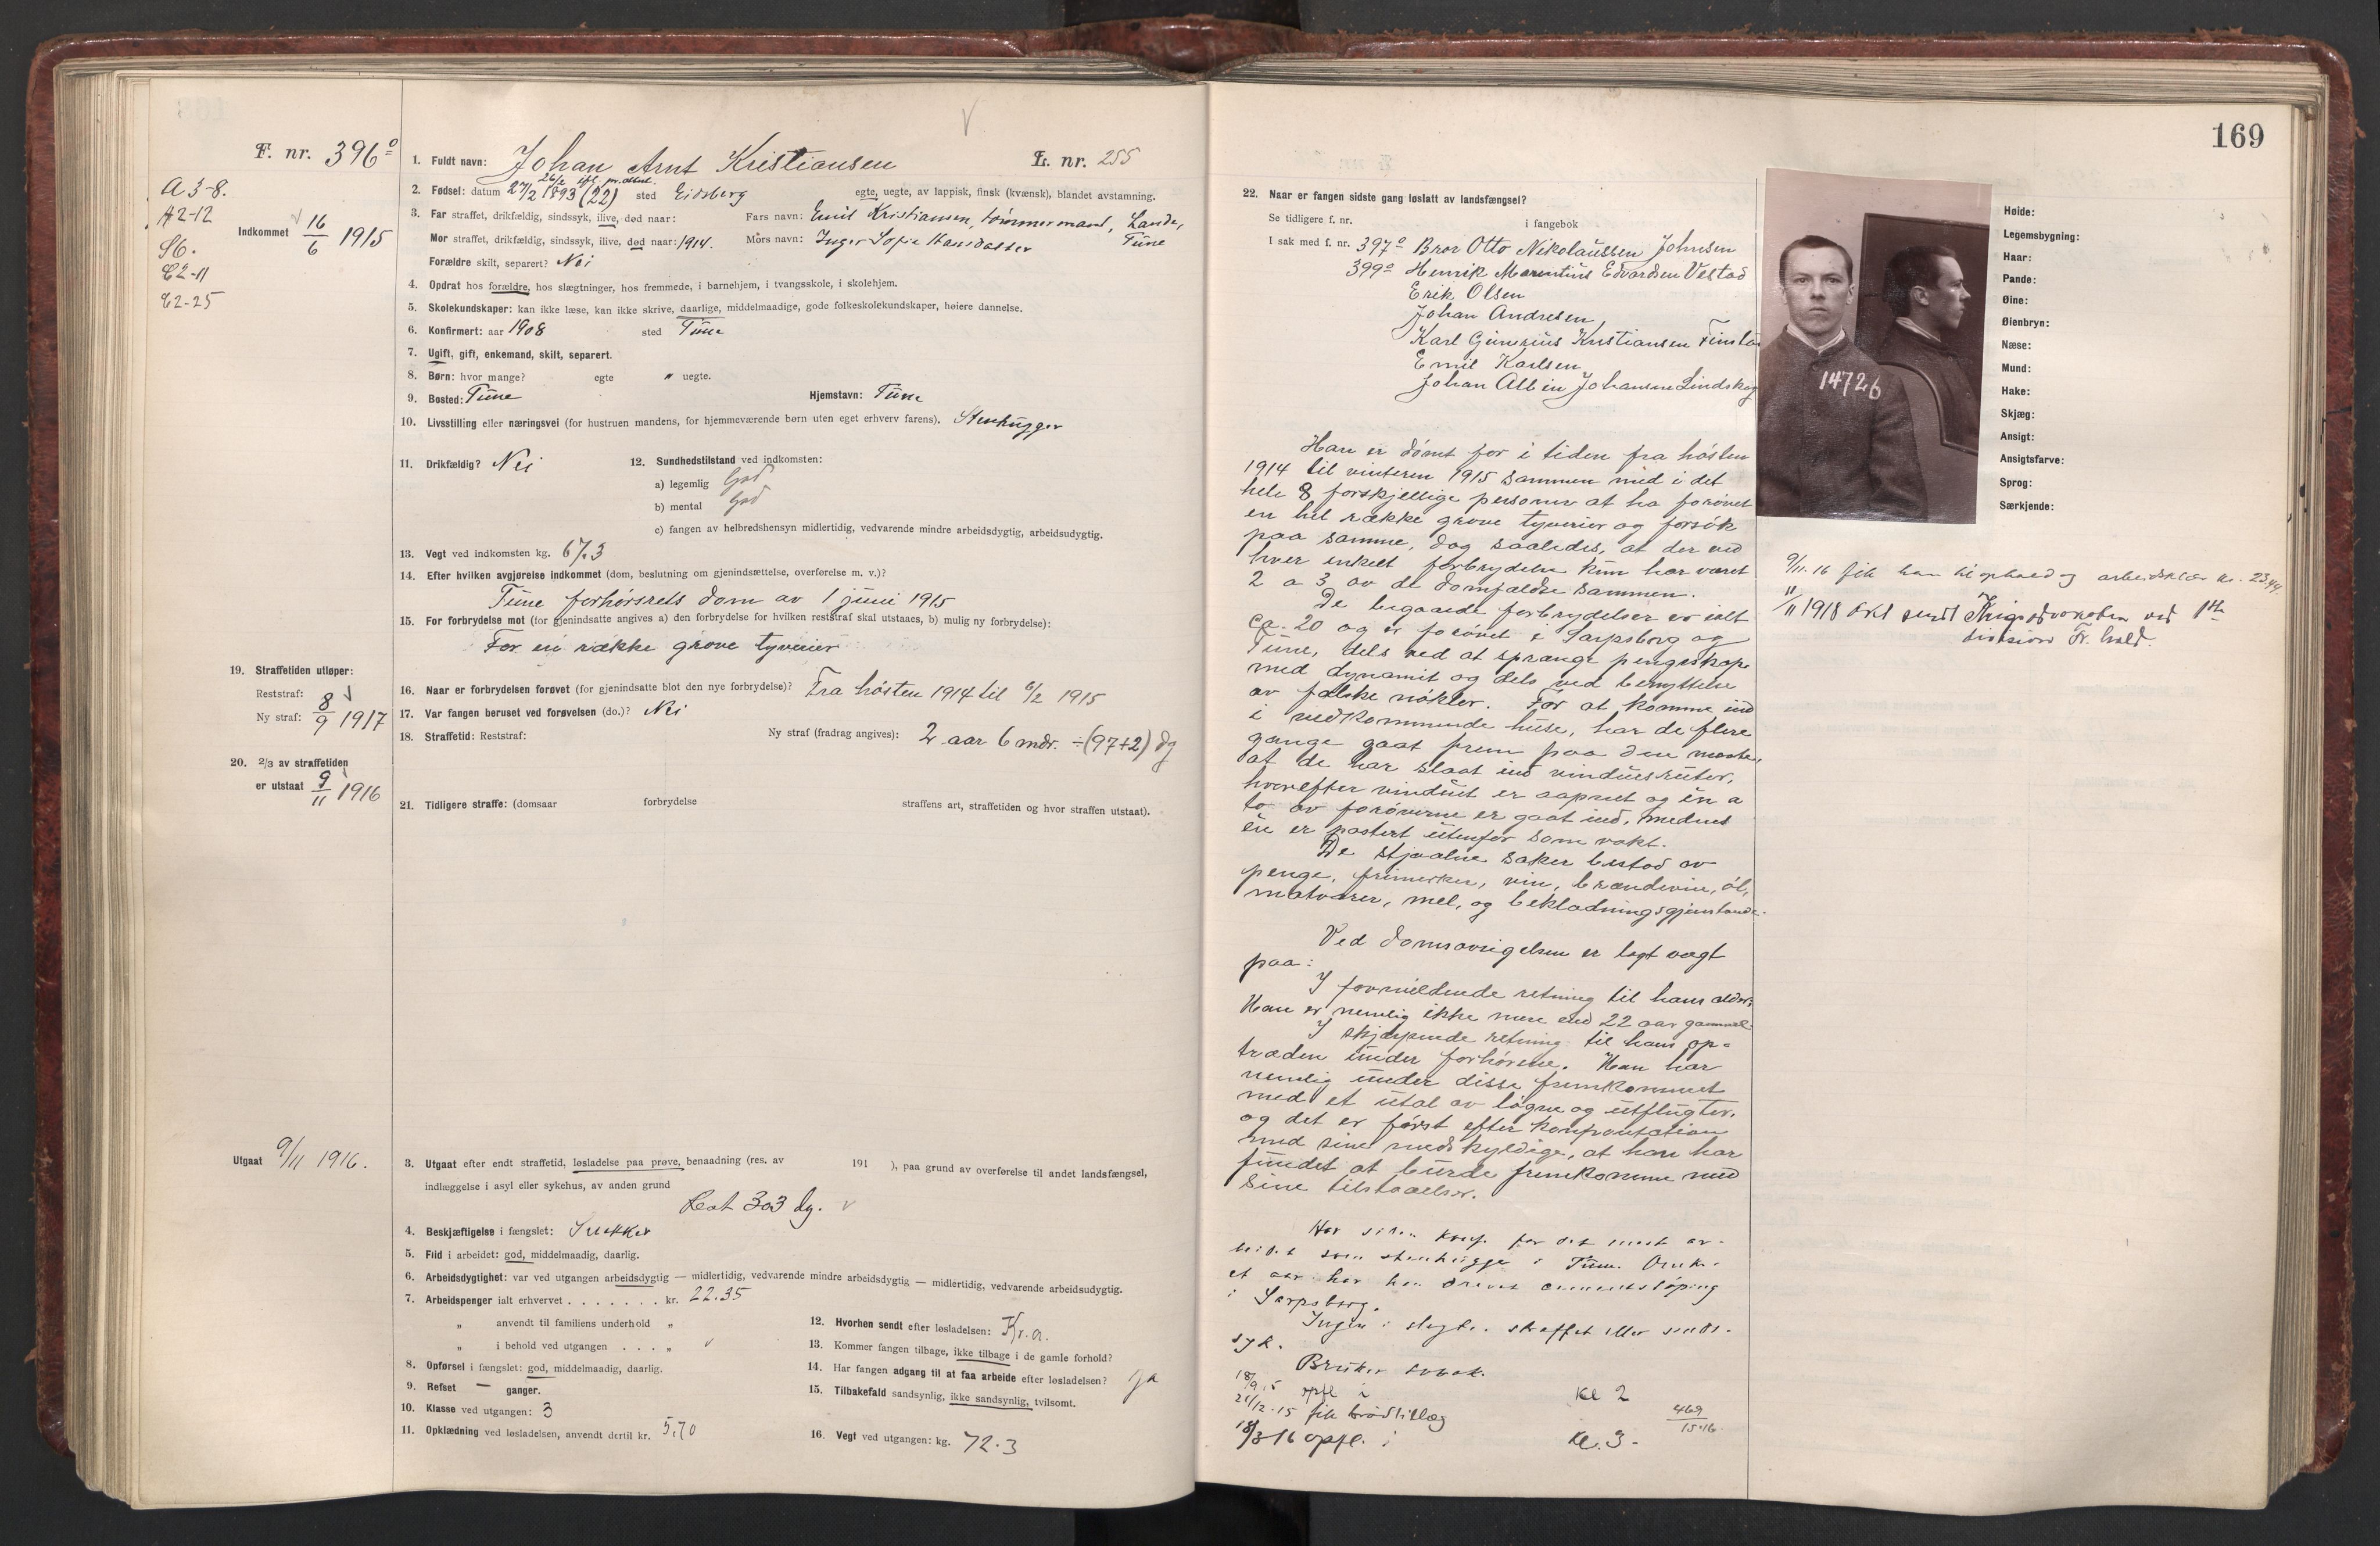 F. nr. 396o
A 3-8.
A2-12
S6.
C2-11
C2-25
Indkommet 16/6 1915
1. Fuldt navn: Johan Arnt Kristiansen L. nr. 255
26/2 ifl. pr. attest.
2. Fødsel: datum 27/2 1893 (22) sted Eidsberg egte, uegte, av lappisk, finsk (kvænsk), blandet avstamning.
3. Far straffet, drikfældig, sindssyk, ilive, død naar: Fars navn: Emil Kristiansen, tømmermand, Lande, Tune
Mor straffet, drikfældig, sindssyk, ilive, død naar: 1914. Mors navn: Inger Sofie Hansdatter
Forældre skilt, separert? Nei
4. Opdrat hos forældre, hos slægtninger, hos fremmede, i barnehjem, i tvangsskole, i skolehjem.
5. Skolekundskaper: kan ikke læse, kan ikke skrive, daarlige, middelmaadige, gode folkeskolekundskaper, høiere dannelse.
6. Konfirmert: aar 1908 sted Tune
7. Ugift, gift, enkemand, skilt, separert.
8. Børn: hvor mange? egte " uegte.
9. Bosted: Tune Hjemstavn: Tune
10. Livsstilling eller næringsvei (for hustruen mandens, for hjemmeværende børn uten eget erhverv farens). Stenhugger
11. Drikfældig? Nei 12. Sundhedstilstand ved indkomsten:
a) legemlig God
b) mental God
c) fangen av helbredshensyn midlertidig, vedvarende mindre arbeidsdygtig, arbeidsudygtig.
13. Vegt ved indkomsten kg. 67.3
14. Efter hvilken avgjørelse indkommet (dom, beslutning om gjenindsættelse, overførelse m. v.)?
Tune forhørsrets dom av 1 juni 1915
15. For forbrydelse mot (for gjenindsatte angives a) den forbrydelse for hvilken reststraf skal utstaaes, b) mulig ny forbrydelse):
For en række grove tyverier
19. Straffetiden utløper:
Reststraf:
Ny straf: 8/9 1917
16. Naar er forbrydelsen forøvet (for gjenindsatte blot den nye forbrydelse)? Fra høsten 1914 til 6/2 1915
17. Var fangen beruset ved forøvelsen (do.)? Nei
18. Straffetid: Reststraf: Ny straf (fradrag angives): 2 aar 6 mdr. ÷(97+2) dg
20. 2/3 av straffetiden
er utstaat 9/11 1916
21. Tidligere straffe: (domsaar forbrydelse straffens art, straffetiden og hvor straffen utstaat).
Utgaat 9/11 1916.
3. Utgaat efter endt straffetid, løsladelse paa prøve, benaadning (res. av 191 ), paa grund av overførelse til andet landsfængsel,
indlæggelse i asyl eller sykehus, av anden grund
Rest 303 dg.
4. Beskjæftigelse i fængslet: Snekker
5. Flid i arbeidet: god, middelmaadig, daarlig.
6. Arbeidsdygtighet: var ved utgangen arbeidsdygtig — midlertidig, vedvarende mindre arbeidsdygtig — midlertidig, vedvarende arbeidsudygtig.
7. Arbeidspenger ialt erhvervet . . . . . . . kr. 22.35
„ anvendt til familiens underhold „
„ i behold ved utgangen . . . „
8. Opførsel i fængslet: god, middelmaadig, daarlig.
9. Refset — ganger.
10. Klasse ved utgangen: 3
11. Opklædning ved løsladelsen, anvendt dertil kr. 5,70
12. Hvorhen sendt efter løsladelsen: Kr.a.
13. Kommer fangen tilbage, ikke tilbage i de gamle forhold?
14. Har fangen adgang til at faa arbeide efter løsladelsen? Ja
15. Tilbakefald sandsynlig, ikke sandsynlig, tvilsomt.
16. Vegt ved utgangen: kg. 72.3
169
22. Naar er fangen sidste gang løslatt av landsfængsel?
Se tidligere f. nr. i fangebok
I sak med f. nr. 397o Bror Otto Nikolaussen Johnsen
399o Henrik Marentius Edvardsen Vestad
Erik Olsen
Johan Andresen
Karl Gunerius Kristiansen
Emil Karlsen
Johan Albin Johansen Lindskog
14726
Høide:
Legemsbygning:
Haar:
Pande:
Øine:
Øienbryn:
Næse:
Mund:
Hake:
Skjæg:
Ansigt:
Ansigtsfarve:
Sprog:
Særkjende:
Han er dømt for i tiden fra høsten
1914 til vinteren 1915 sammen med i det
hele 8 forskjellige personer at ha forøvet
en hel række grove tyverier og forsøk
paa samme, dog saaledes, at der ved
hver enkelt forbrydelse kun har været
2 a 3 av de domfældte sammen.
De begaaede forbrydelser er ialt
ca. 20 og er forøvet i Sarpsborg og
Tune, dels ved at sprænge pengeskape
med dynamit og dels ved benyttelse
av falske nøkler. For at komme ind
i vedkommende huse, har de flere
gange gaat frem paa den maate,
at de har slaat ind vindusruter,
hvorefter vinduet er aapnet og én a
to av forøverne er gaat ind, medens
én er postert utenfor som vakt.
De stjaalne saker bestod av
penge, frimerker, vin, brændevin, øl,
matvarer, mel, og beklædningsgjenstande.
Ved domsavsigelsen er lagt vægt
paa:
I formildende retning til hans alder.
Han er nemlig ikke mere end 22 aar gammel.
I skjærpende retning til hans op-
træden under forhørene. Han har
nemlig under disse fremkommet
med et utal av løgne og utflugter,
og det er først efter konfrontation
med sine medskyldige, at han har
fundet at burde fremkomme med
sine tilstaaelser.
Har siden konf. for det meste ar-
beidet som stenhugge i Tune.
et aar har han drevet cementstøping
i Sarpsborg.
Ingen i slegten straffet eller sinds-
syk.
Bruker tobak.
18/9.15 opfl. i Kl 2
21/12.15 fik brødtillæg 469/15-16
18/3-16 opfl. i Kl. 3.
9/11.16 fik han til ophold og arbeidsklær kr. 23,44.
11/11 1918 sendt Krigsadvokaten ved 1ste
division Fr.hald.